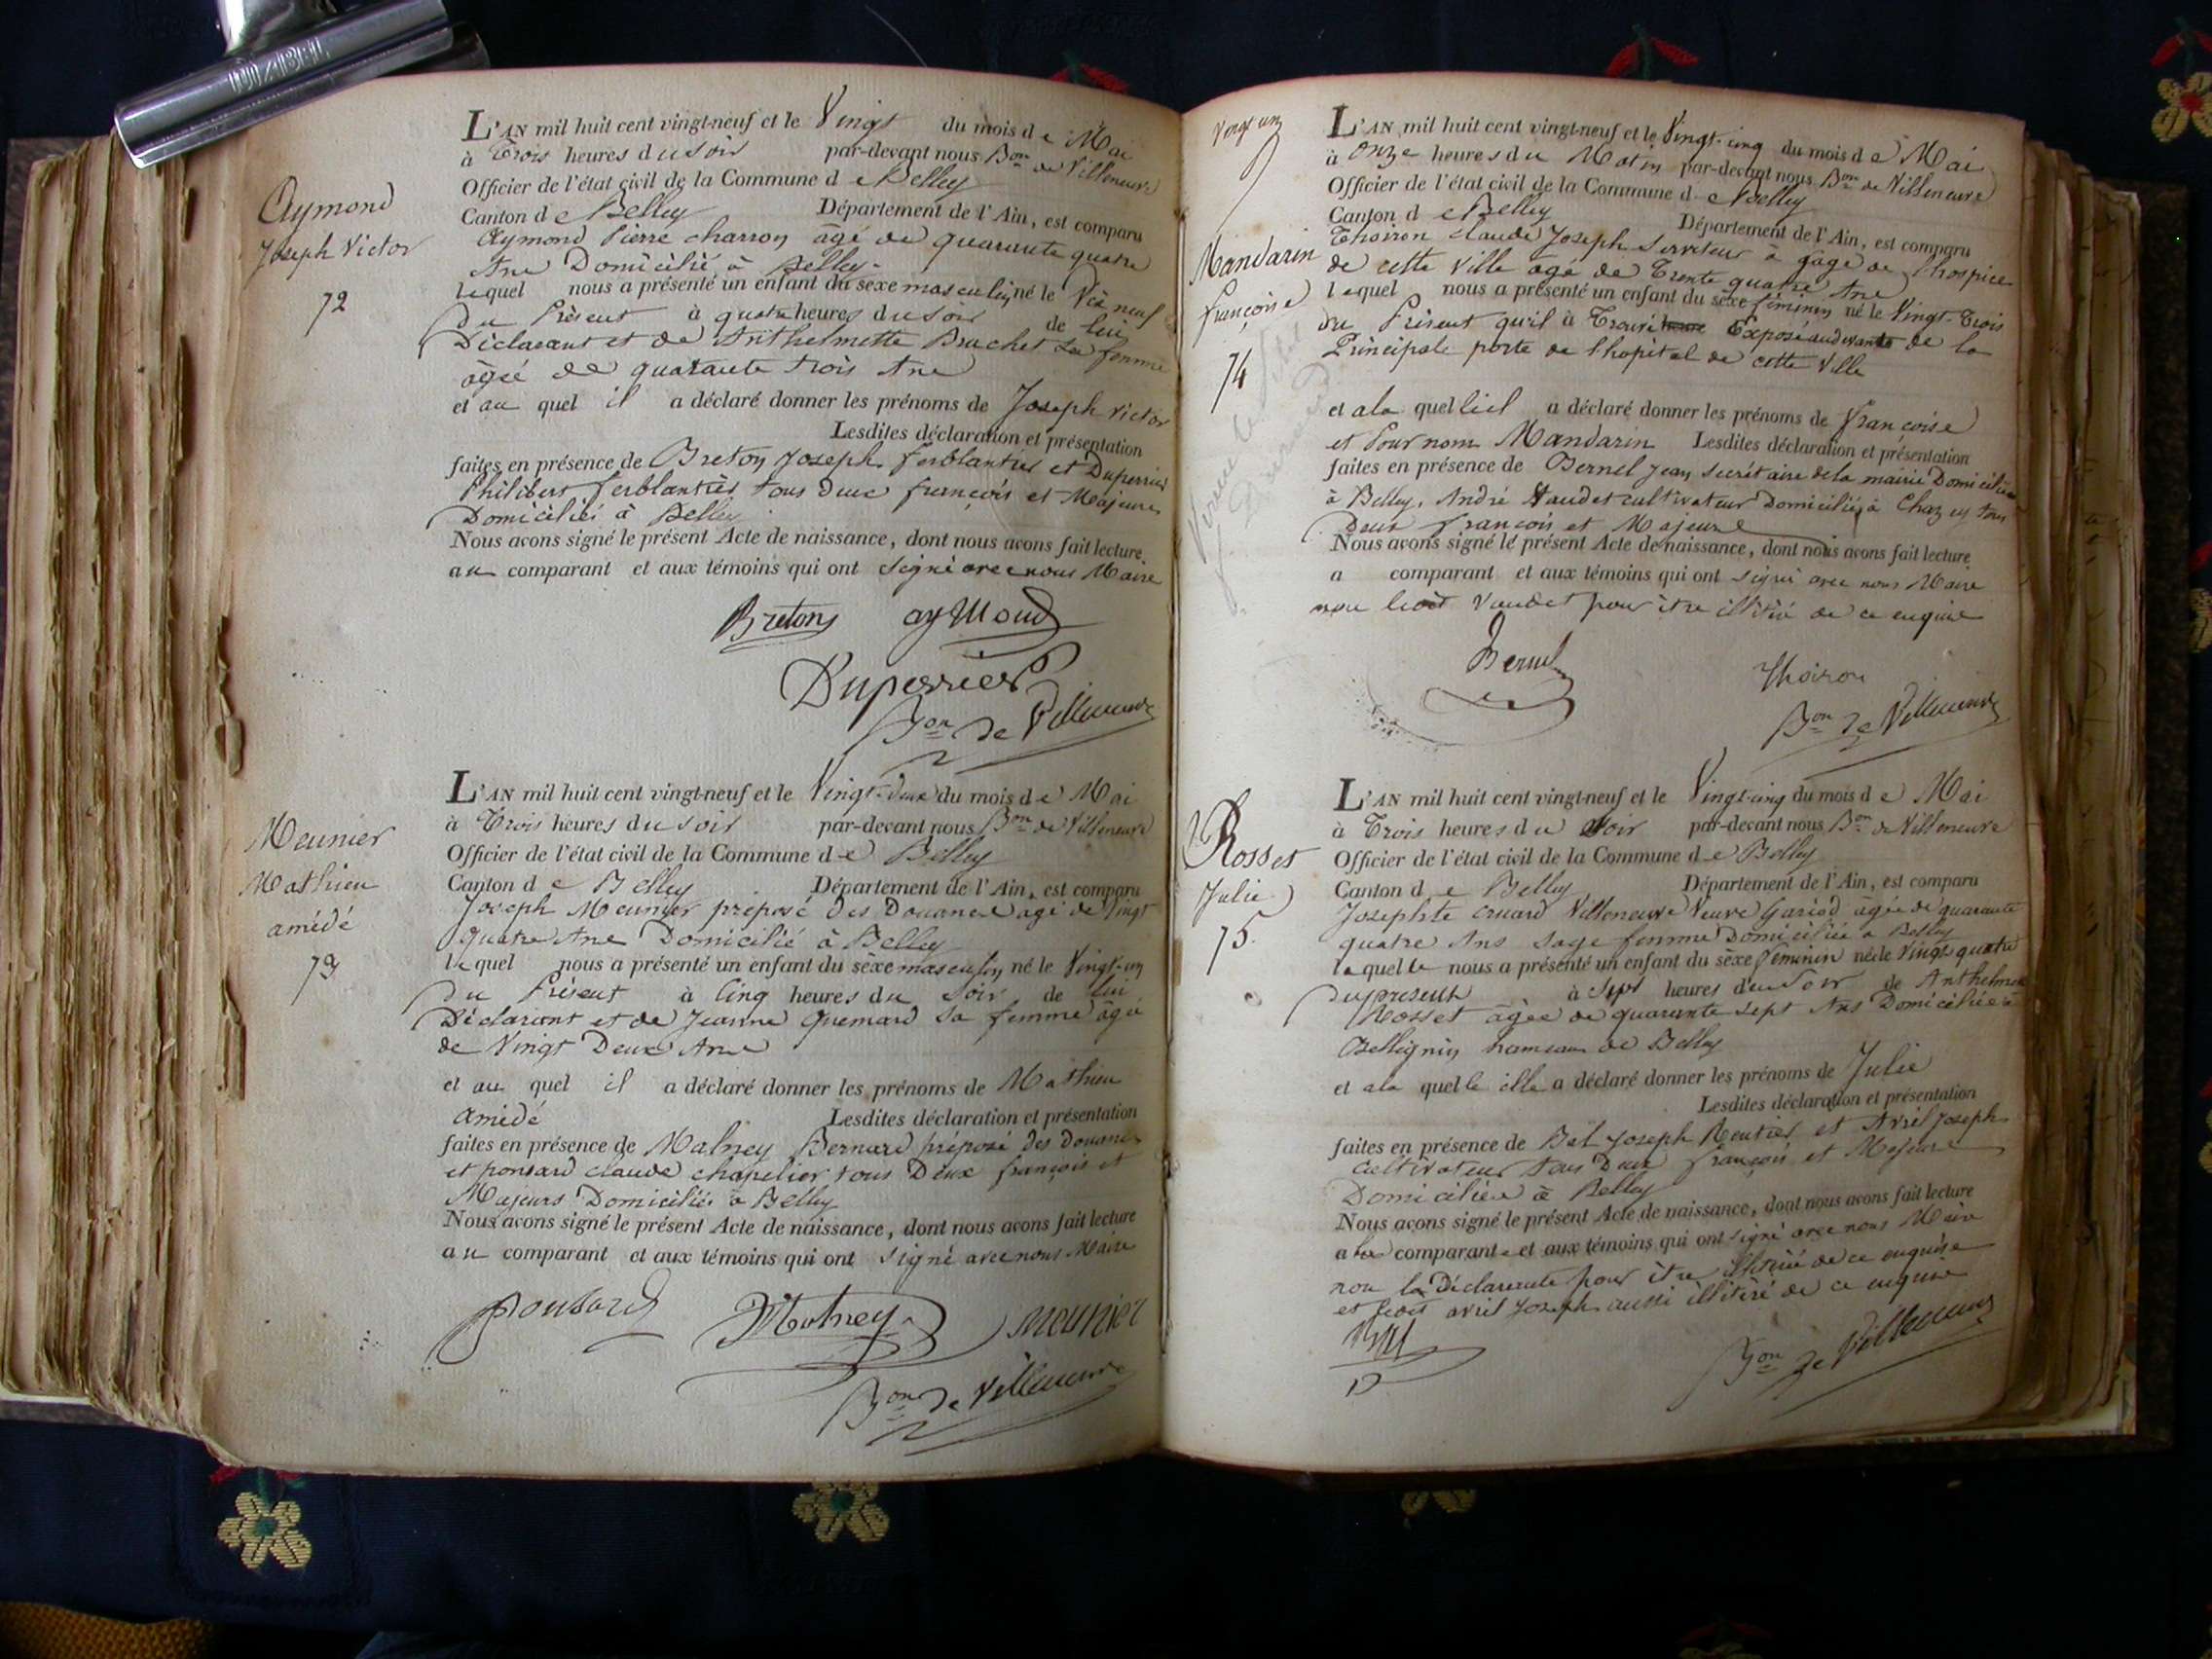 L'AN mil huit cent vingt-neuf et le Vingt du mois de Mai
à Trois heures du soir par-devant nous Bon de Villeneuve
Officier de l'état civil de la Commune de Belley
Canton de Belley Département de l'Ain, est comparu
Aymond Pierre charron âgé de quarante quatre
Ans Domicilié à Belley
lequel nous a présenté un enfant du sexe masculin né le Dix neuf
du Présent à quatre heures du soir de lui
Déclarant et de Anthelmette Brachet sa femme
âgée de quarante trois Ans
et au quel il a déclaré donner les prénoms de Joseph victor
Lesdites déclaration et présentation
faites en présence de Breton Joseph ferblantier et Duperrier
Philibert ferblantier tous deux françois et Majeurs
Domiciliés à Belley
Nous avons signé le présent Acte de naissance, dont nous avons fait lecture
au comparant et aux témoins qui ont signé avec nous Maire
Aymond
Joseph Victor
72
Bretony aymond
Duperrier
Bon de Villeneuve
L'AN mil huit cent vingt-neuf et le Vingt-deux du mois de Mai
à Trois heures du soir par-devant nous Bon de Villeneuve
Officier de l'état civil de la Commune de Belley
Canton de Belley Département de l'Ain, est comparu
Joseph Meunier preposé des Douanes âgé de Vingt
quatre Ans Domicilié à Belley
lequel nous a présenté un enfant du sexe masculin né le Vingt-un
du Présent à Cinq heures du Soir de lui
Déclarant et de Jeanne Guemard sa femme âgé
de Vingt Deux Ans
et au quel il a déclaré donner les prénoms de Mathieu
amédé Lesdites déclaration et présentation
faites en présence de Malney Bernard préposé des Douanes
et ponsard claude chapelier tous Deux françois et
Majeurs Domiciliés à Belley
Nous avons signé le présent Acte de naissance, dont nous avons fait lecture
au comparant et aux témoins qui ont signé avec nous Maire
Meunier
Mathieu
amédé
73
ponsard Malney Meunier
Bon de Villeneuve
Vingt un
L'AN mil huit cent vingt-neuf et le Vingt-cinq du mois de Mai
à Onze heures du Matin par-devant nous Bon de Villeneuve
Officier de l'état civil de la Commune de Belley
Canton de Belley Département de l'Ain, est comparu
Thoiron claude Joseph Serviteur à gage de l'hospice
de cette Ville âgé de Trente quatre Ans
lequel nous a présenté un enfant du sexe féminin né le Vingt-Trois
du Présent qu'il à Trouvé Exposé audevant de la
Principale porte de l'hopital de cette Ville
et ala quel a déclaré donner les prénoms de françoise
et Pour nom Mandarin Lesdites déclaration et présentation
faites en présence de Bernel Jean secrétaire de la mairie Domicilié
à Belley, André Vaudet cultivateur Domicilié à Chazey tous
Deux françois et Majeurs
Nous avons signé le présent Acte de naissance, dont nous avons fait lecture
a comparant et aux témoins qui ont signé avec nous Maire
non Vaudet pour être illitéré de ce enquis
Mandarin
françoise
74
Bernel Thoiron
Bon de Villeneuve
L'AN mil huit cent vingt-neuf et le Vingt-cinq du mois de Mai
à Trois heures du Soir par-devant nous Bon de Villeneuve
Officier de l'état civil de la Commune de Belley
Canton de Belley Département de l'Ain, est comparu
Josephte Villeneuve Veuve Gariod âgée de quarante
quatre Ans sage femme Domiciliée à Belley
laquelle nous a présenté un enfant du sexe féminin né le Vingt-quatre
du present à Sept heures du Soir de Anthelme
Rosset âgée de quarante sept Ans Domiciliée à
Bellignin hameau de Belley
et ala quelle elle a déclaré donner les prénoms de Julie
Lesdites déclaration et présentation
faites en présence de Bal Joseph Rentier et Avril Joseph
Cultivateur tous Deux françois et Majeurs
Domiciliés à Belley
Nous avons signé le présent Acte de naissance, dont nous avons fait lecture
a la comparante et aux témoins qui ont signé avec nous Maire
non la Déclarante pour être illitéré de ce enquise
et avril Joseph aussi illitéré de ce enquis
Rosset
Julie
75
Bon de Villeneuve